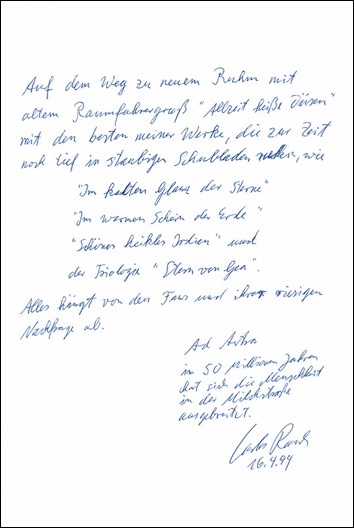 Auf dem Weg zu neuem Ruhm mit
altem Raumfahrergruß "Allzeit heiße Düsen"
mit den besten meiner Werke, die zur Zeit
noch tief in staubigen Schubladen ruhen, wie
"Im kalten Glanz der Sterne"
"Im warmen Schein der Erde"
"Schönes heikles Irdien" und
der Triologie "Stern von Gaa".
Alles hängt von den Fans und ihrer riesigen
Nachfrage ab.
Ad Astra
in 50 Millionen Jahren
hat sich die Menschheit
in der Milchstraße
ausgebreitet.
16.4.94